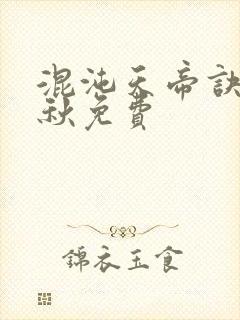 混沌天帝訣
秋免費
錦衣玉食